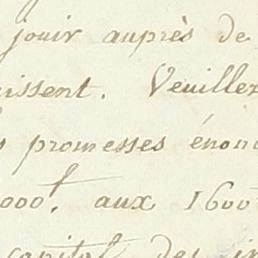 jouir auprès de
issent. Veuillez
promesses énon
000ᶠ. aux 1600
capital des in